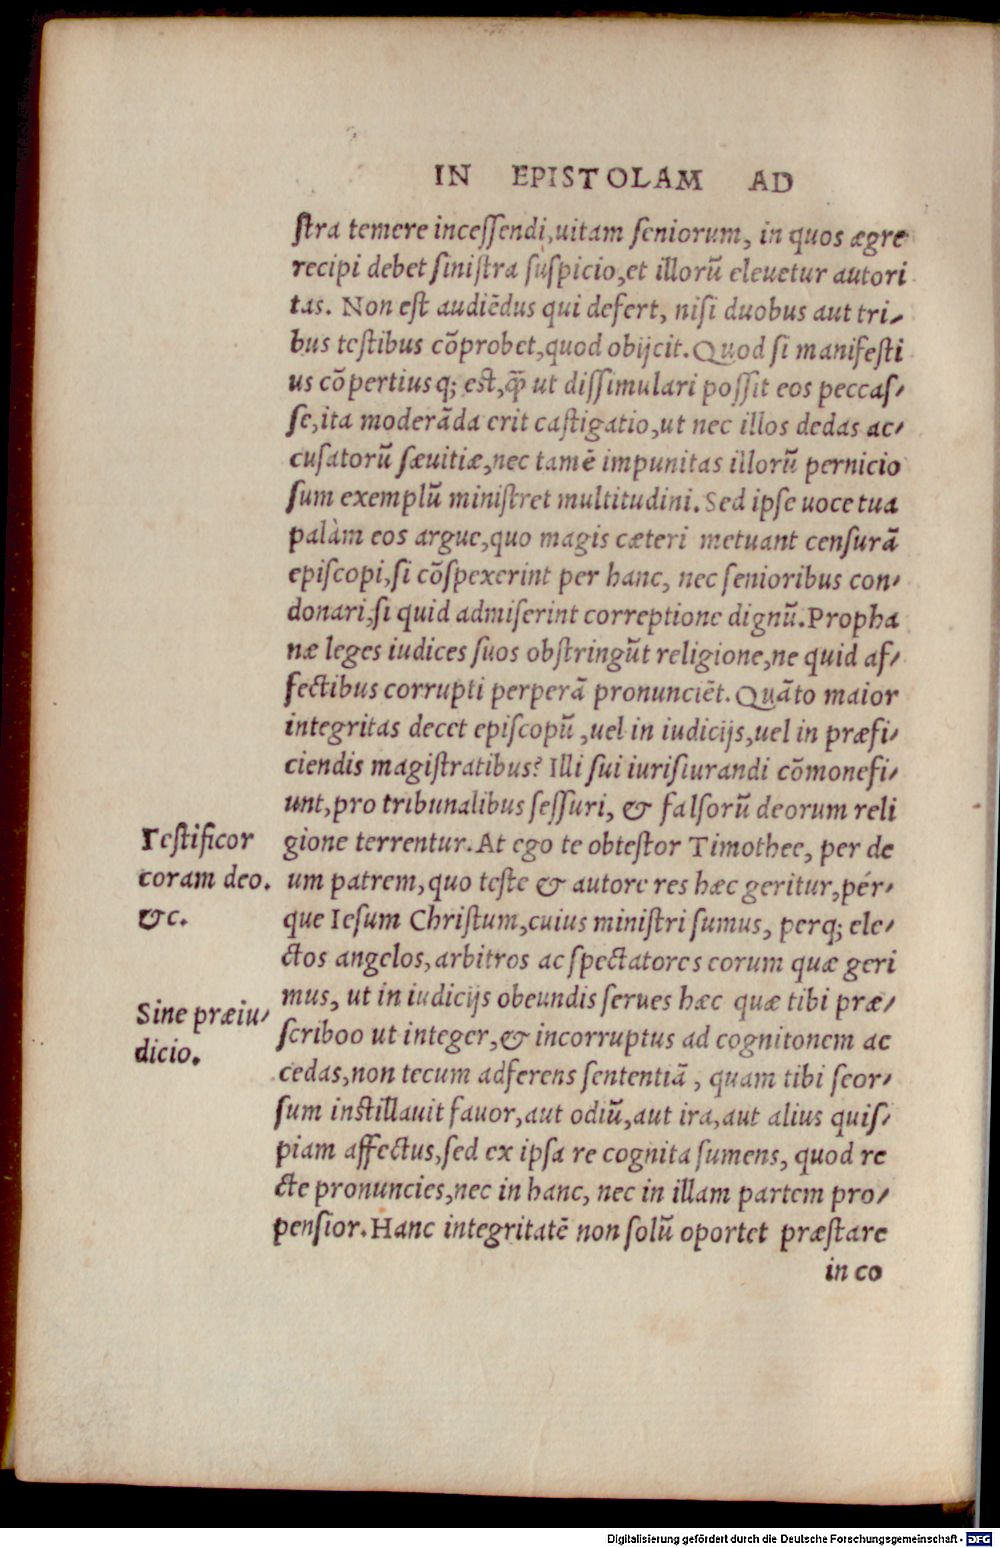 IN EPISTOLAM AD
ſtra temere inceſſendi,uitam ſeniorum, in quos ægre
recipi debet ſiniſtra ſuſpicio,et illorũ eleuetur autori
tas. Non eſt audiẽdus qui defert, niſi duobus aut tri-
bus teſtibus cõprobet,quod obijcit. Quod ſi manifeſti
us cõpertiusq; eſt,q̃ ut diſſimulari poſſit eos peccaſ-
ſe,ita moderãda erit caſtigatio,ut nec illos dedas ac-
cuſatorũ ſæuitiæ,nec tamẽ impunitas illorũ pernicio
ſum exemplũ miniſtret multitudini. Sed ipſe uoce tua
palàm eos argue,quo magis cæteri metuant cenſurã
epiſcopi,ſi cõſpexerint per hanc, nec ſenioribus con-
donari,ſi quid admiſerint correptione dignũ. Propha
næ leges iudices ſuos obſtringũt religione,ne quid af-
fectibus corrupti perperã pronunciẽt. Quãto maior
integritas decet epiſcopũ ,uel in iudicijs,uel in præfi-
ciendis magiſtratibus? Illi ſui iuriſiurandi cõmonefi-
unt,pro tribunalibus ſeſſuri, & falſorũ deorum reli
gione terrentur. At ego te obteſtor Timothee, per de
um patrem,quo teſte & autore res hæc geritur,pér-
que Ieſum Chriſtum,cuius miniſtri ſumus, perq; ele-
ctos angelos,arbitros ac ſpectatores eorum quæ geri
mus, ut in iudicijs obeundis ſerues hæc quæ tibi præ-
ſcriboo ut integer,& incorruptus ad cognitonem ac
cedas,non tecum adferens ſententiã , quam tibi ſeor-
ſum inſtillauit fauor,aut odiũ,aut ira,aut alius quiſ-
piam affectus,ſed ex ipſa re cognita ſumens, quod re
cte pronuncies,nec in hanc, nec in illam partem pro-
penſior. Hanc integritatẽ non ſolũ oportet præſtare
in co
Teſtificor
coram deo.
&c.
Sine præiu-
dicio.
Digitalisierung gefördert durch die Deutsche Forschungsgemeinschaft - DFG